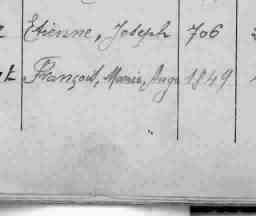 Etienne, Joseph 706
François, Marie, Ange 1849